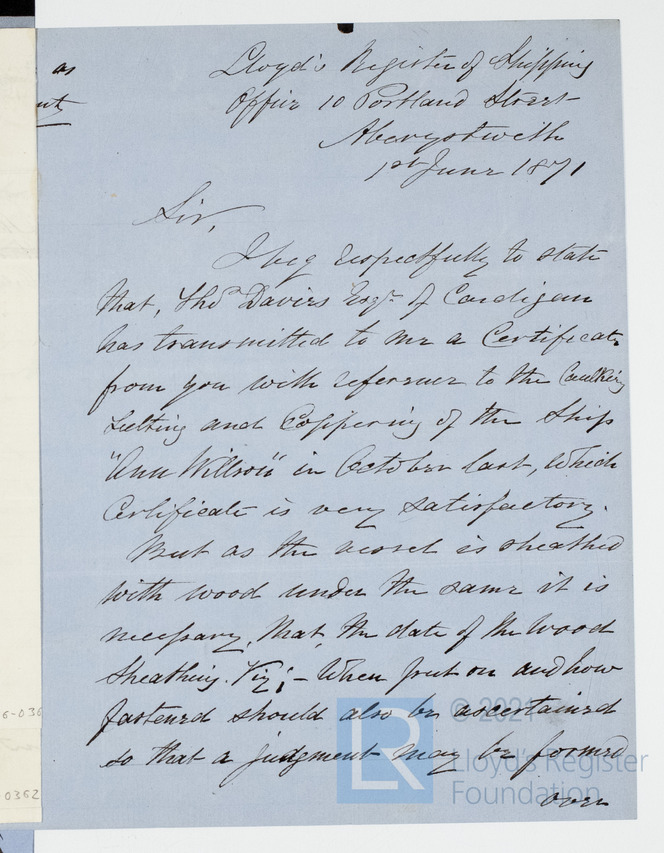 as
Lloyd's Register of Shipping
Office 10 Portland Street
Aberystwith
1st June 1871
Sir,
I beg respectfully to state
that, Thos Davies Esqr of Cardigan
has transmitted to me a Certificate
from you with reference to the Caulking
Felting and Coppering of the Ship
"Ann Willson" in October last, which
Certificate is very satisfactory.
But as the vessel is sheathed
with wood under the same it is
necessary, that, the date of the wood
Sheathing. Viz; - When put on and how
fastened should also be ascertained
so that a judgment may be formed
over
6-036
0362
LR
© 2021
Lloyd's Register
Foundation